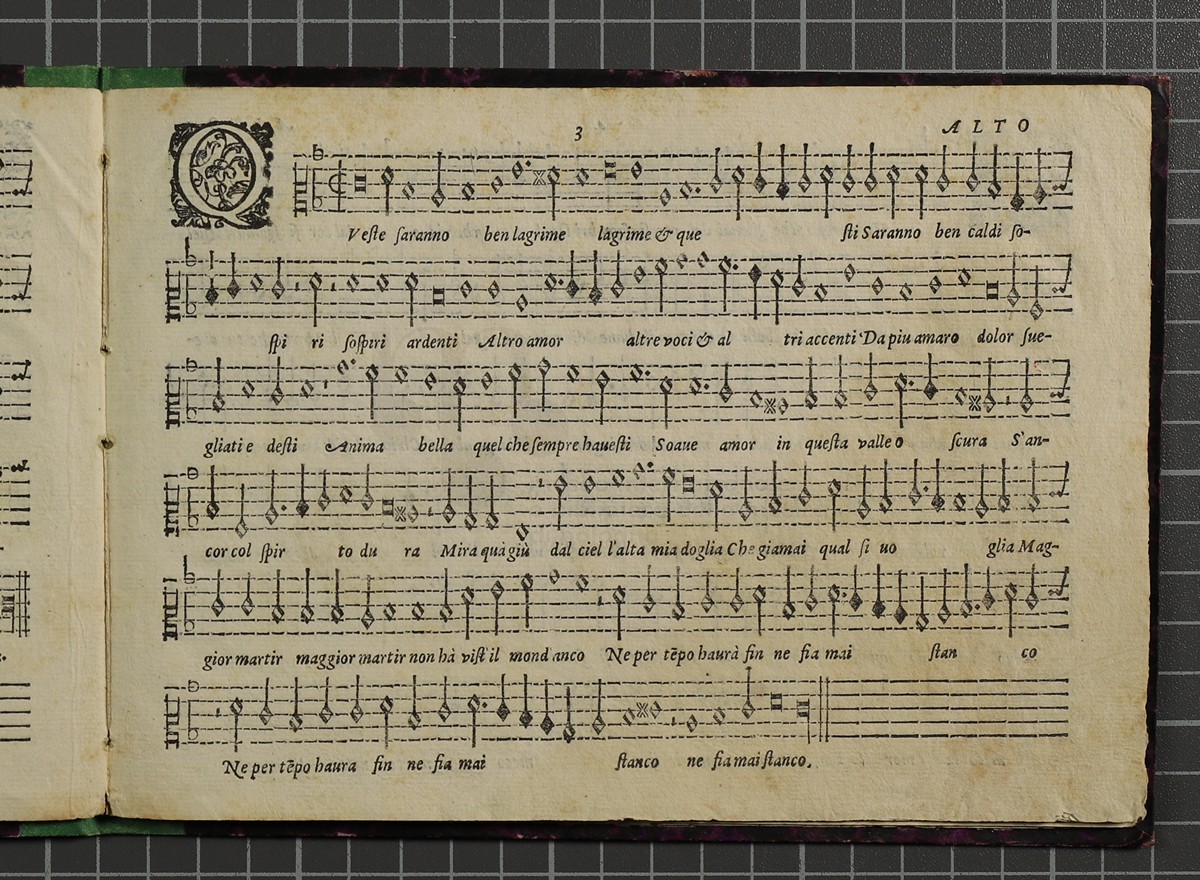 3
ALTO
QVeſte ſaranno ben lagrime lagrime & que ſti Saranno ben caldi ſo-
ſpi ri ſoſpiri ardenti Altro amor altre voci & al tri accenti Da piu amaro dolor ſue-
gliati e deſti Anima bella quel che ſempre haueſti Soaue amor in queſta valle o ſcura S'an-
cor col ſpir to du ra Mira qua giù dal ciel l'alta mia doglia Che giamai qual ſi uo glia Mag-
gior martir maggior martir non hà viſt'il mond'anco Ne per tẽpo haurà fin ne fia mai ſtan co
Ne per tẽpo haura fin ne fia mai ſtanco ne fia mai ſtanco.